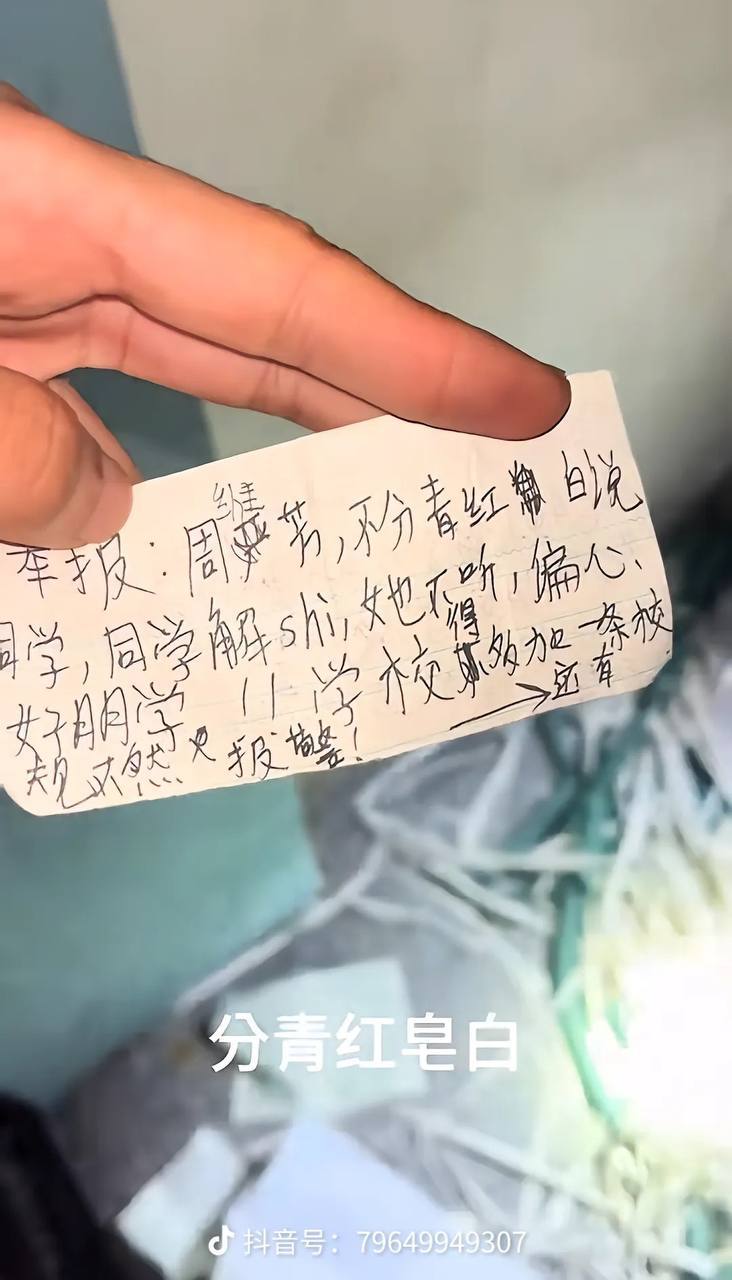 维
举报：周芳，不分青红 白说
同学，同学解shi，她不听，偏心、
得
好朋学 小学校多加一条校
规不然 报警！ → 还有
分青红皂白
抖音号：79649949307